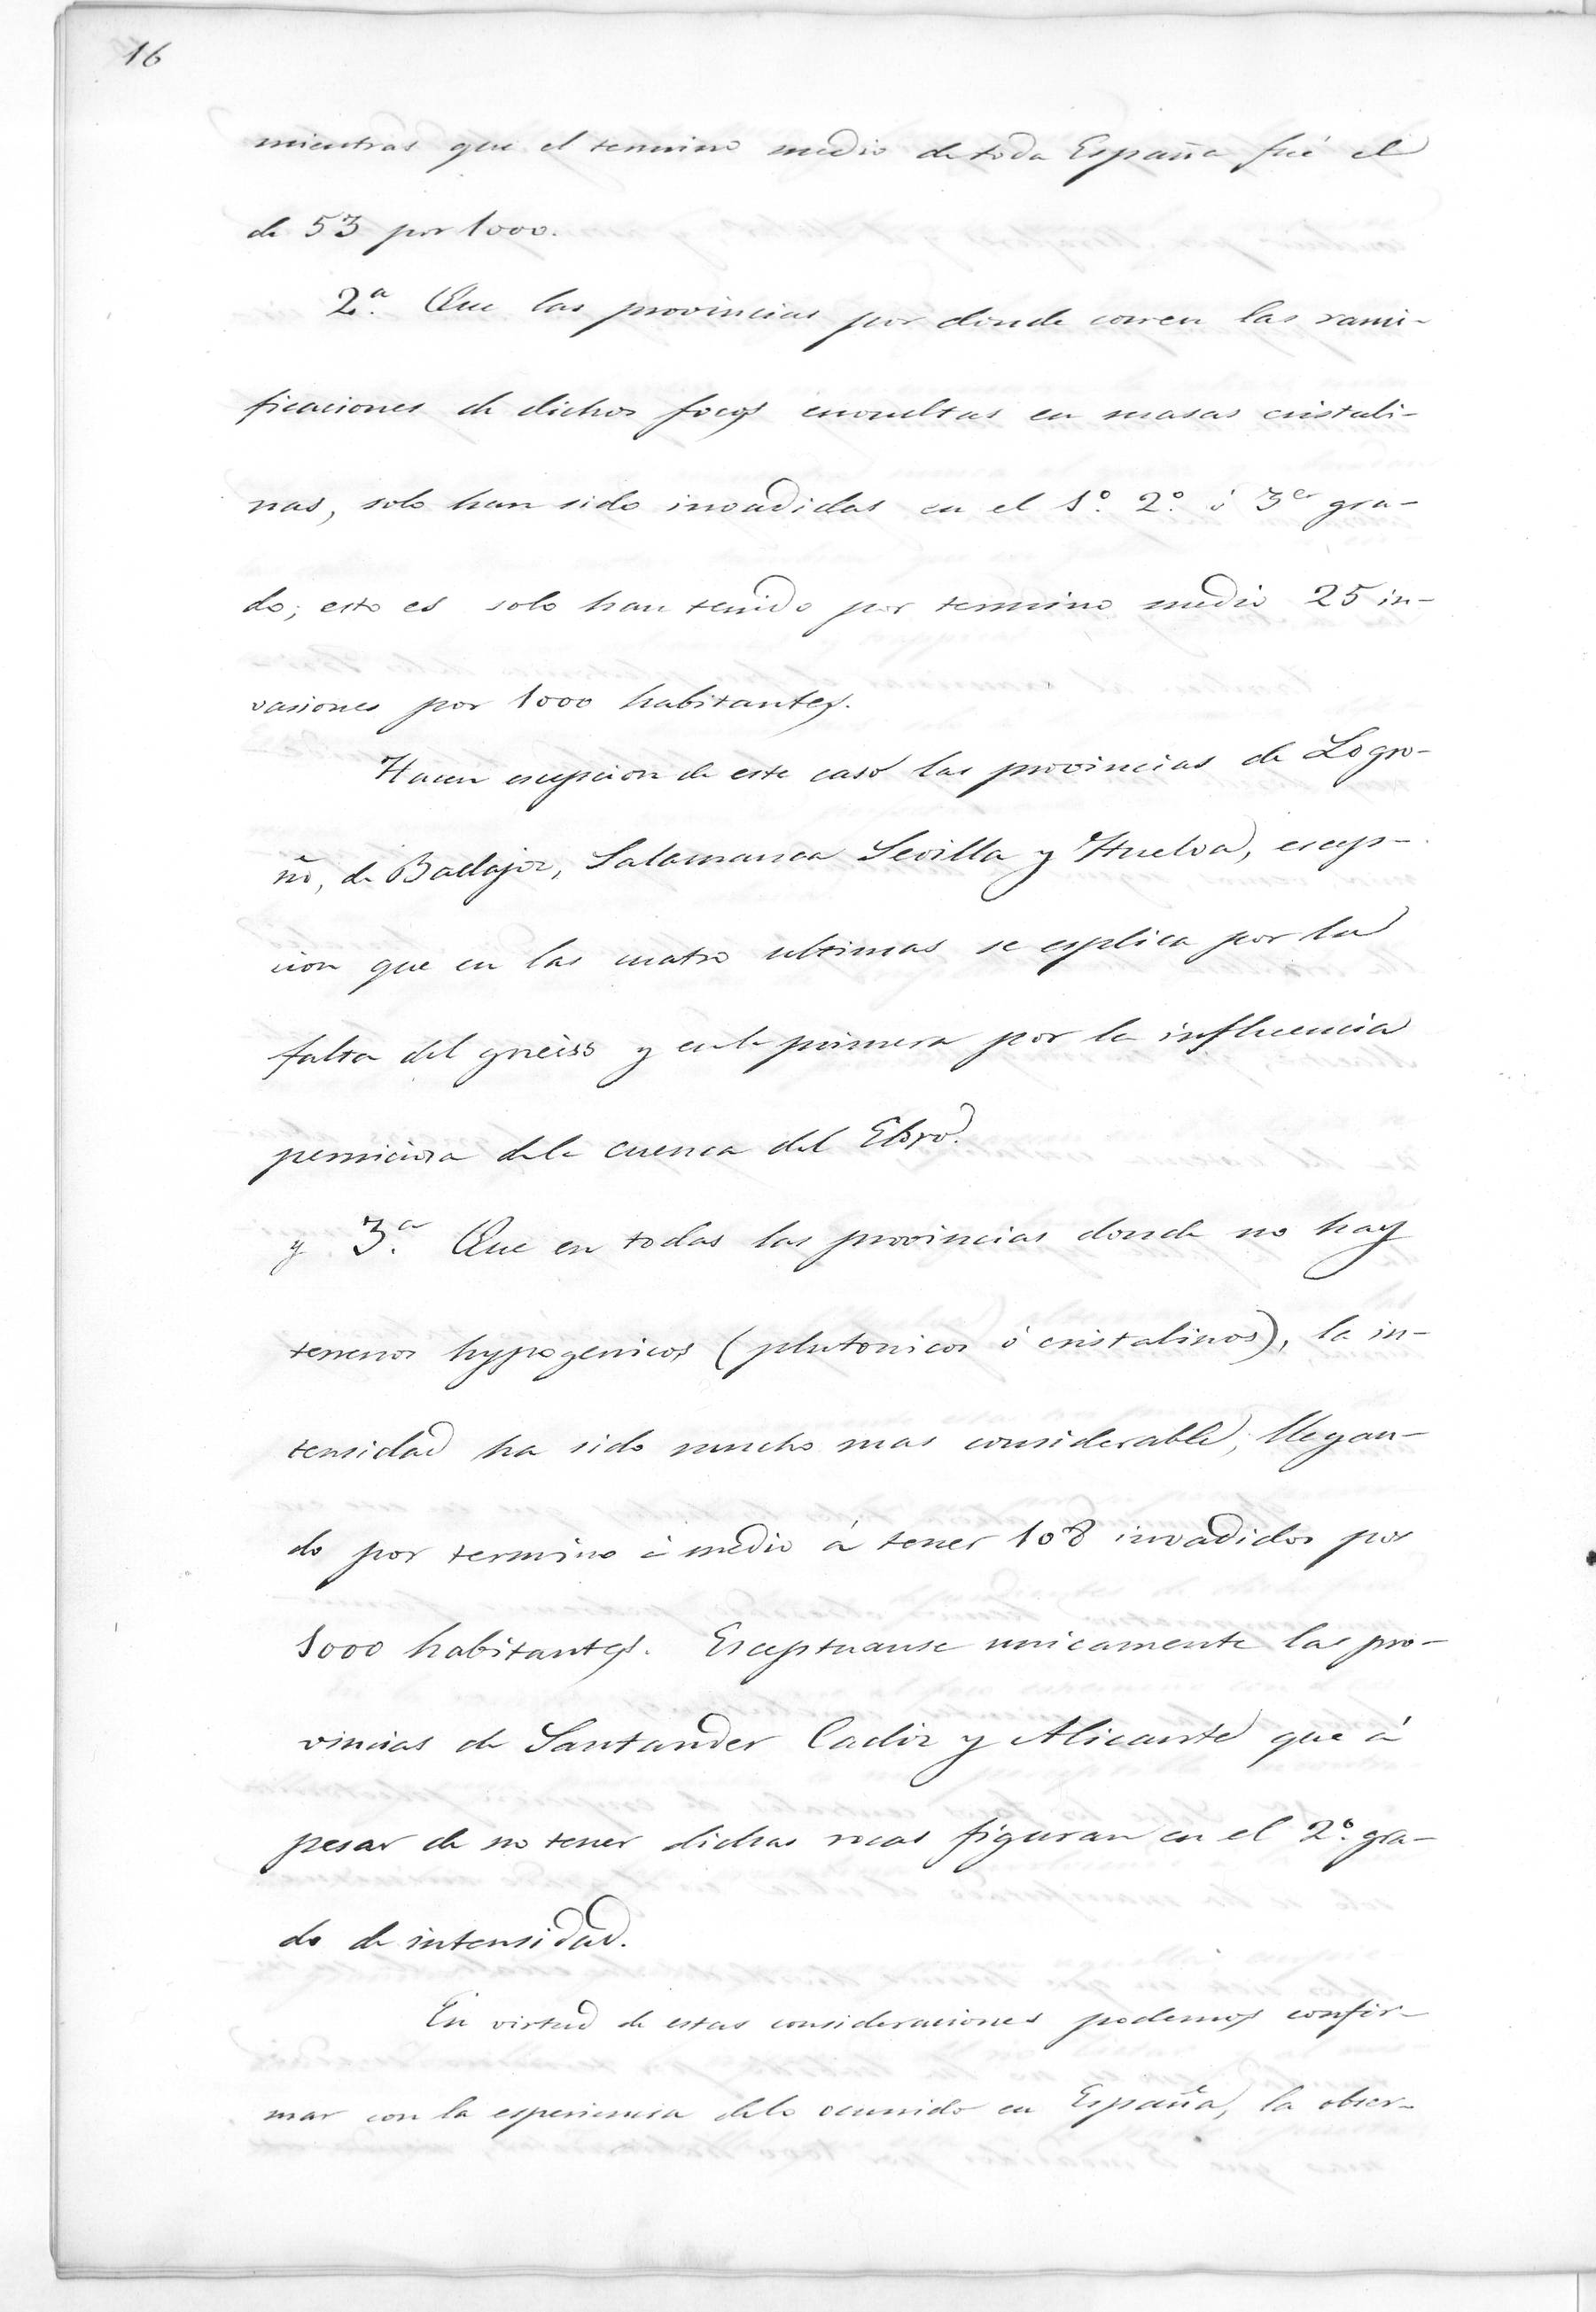 16
mientras que el termino medio de toda España fué el
de 53 por 1000.
2.ª Que las provincias por donde corren las rami-
ficaciones de dichos focos envueltas en masas cristali-
nas, solo han sido invadidas en el 1.º 2.º ó 3.er gra-
do; esto es solo han tenido por termino medio 25 in-
vasiones por 1000 habitantes.
Hacen escepcion de este caso las provincias de Logro-
ño, de Badajoz, Salamanca Sevilla y Huelva, escep-
cion que en las cuatro ultimas se esplica por la
falta del gneiss y en la primera por la influencia
perniciosa de la cuenca del Ebro.
y 3.ª Que en todas las provincias donde no hay
terrenos hypogenicos (plutonicos ó cristalinos), la in-
tensidad ha sido mucho mas considerable, llegan-
do por termino á medio á tener 108 invadidos por
1000 habitantes. Esceptuanse unicamente las pro-
vincias de Santander Cadiz y Alicante que á
pesar de no tener dichas rocas figuran en el 2.º gra-
do de intensidad.
En virtud de estas consideraciones podemos confir-
mar con la esperiencia de lo ocurrido en España, la obser-